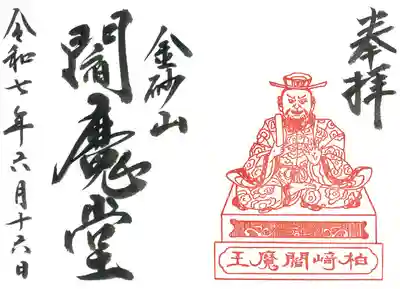 奉拝
金砂山
閻魔堂
令和七年六月十六日
柏﨑閻魔王